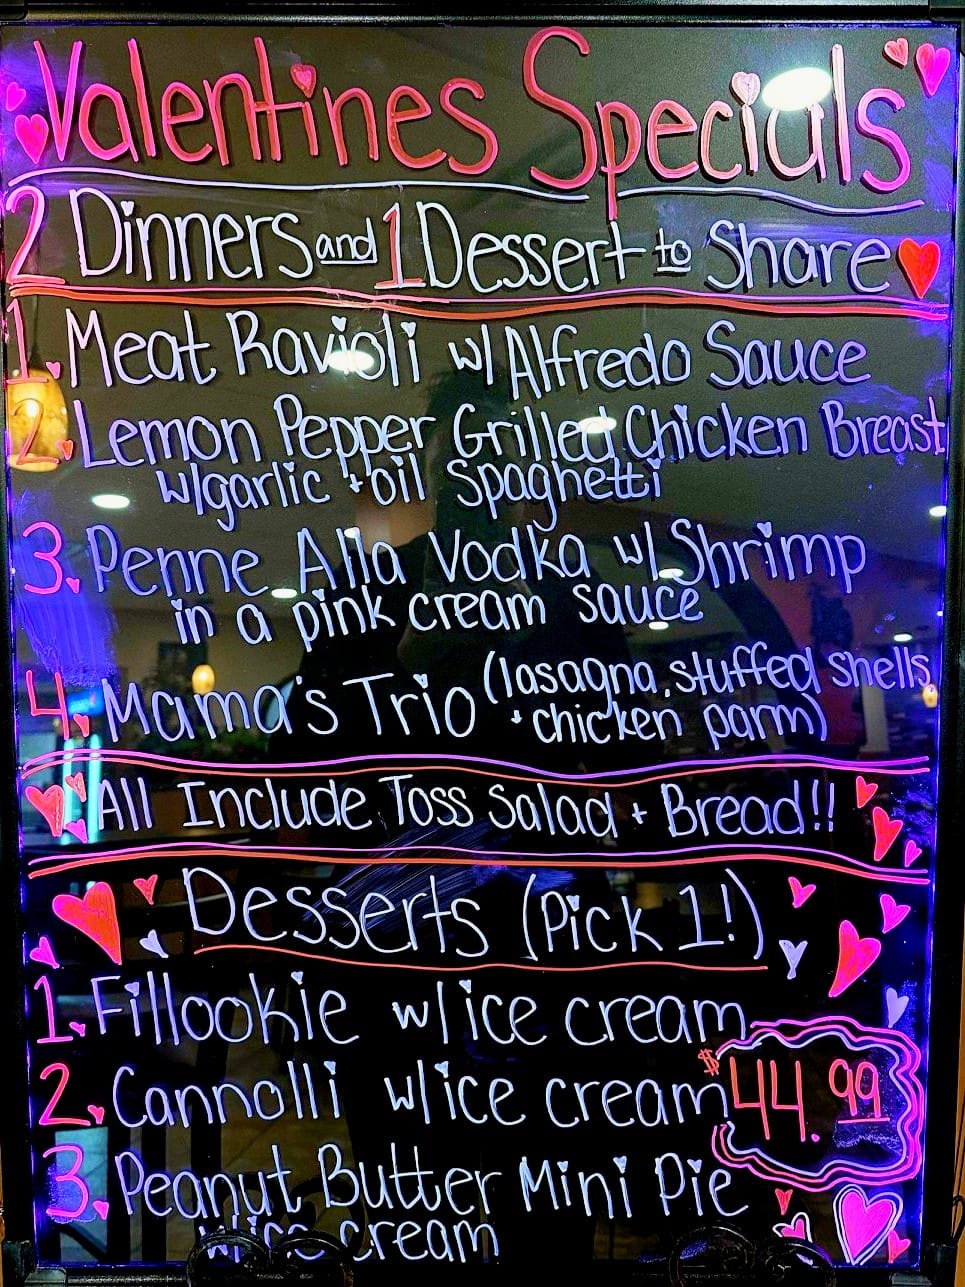 Valentines Specials
2 Dinners and 1 Dessert to Share
1. Meat Ravioli w/ Alfredo Sauce
2. Lemon Pepper Grilled Chicken Breast
w/garlic + oil Spaghetti
3. Penne Alla Vodka w/ Shrimp
in a pink cream sauce
4. Mama's Trio (lasagna, stuffed shells
+ chicken parm)
All Include Toss Salad + Bread!!
Desserts (Pick 1!)
1. Fillookie w/ ice cream
2. Cannolli w/ice cream
$44.99
3. Peanut Butter Mini Pie
w/ice cream